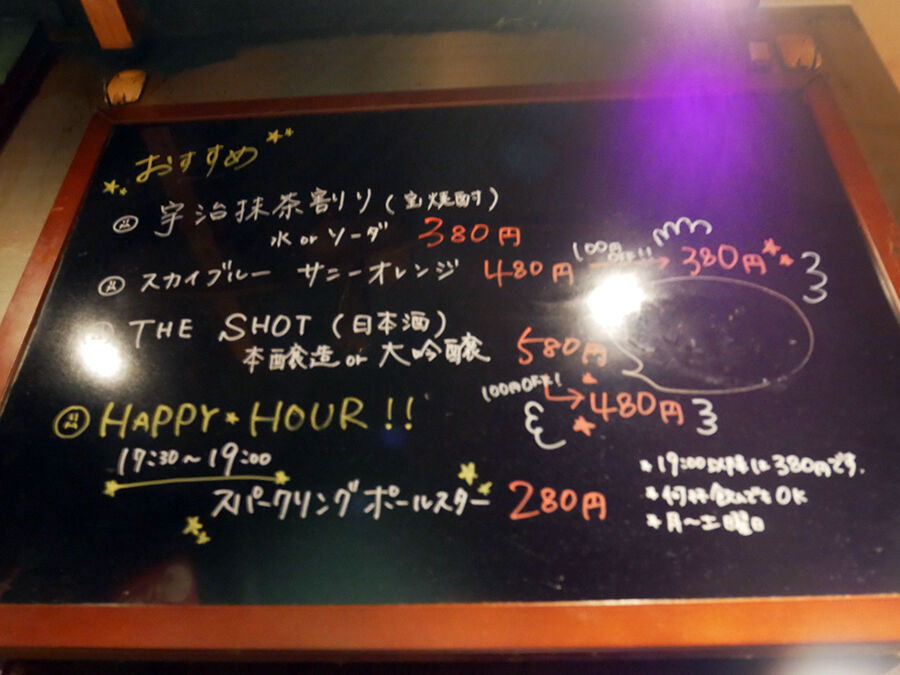 おすすめ
宇治抹茶割り(宝焼酎)
水 or ソーダ 380円
スカイブルー サニーオレンジ 480円 100円OFF!! → 380円
THE SHOT (日本酒)
本醸造 or 大吟醸 580円
100円OFF! → 480円
HAPPY★HOUR!!
17:30~19:00
スパークリングポールスター 280円
*19:00以降は380円です.
*何杯飲んでもOK
*月~土曜日